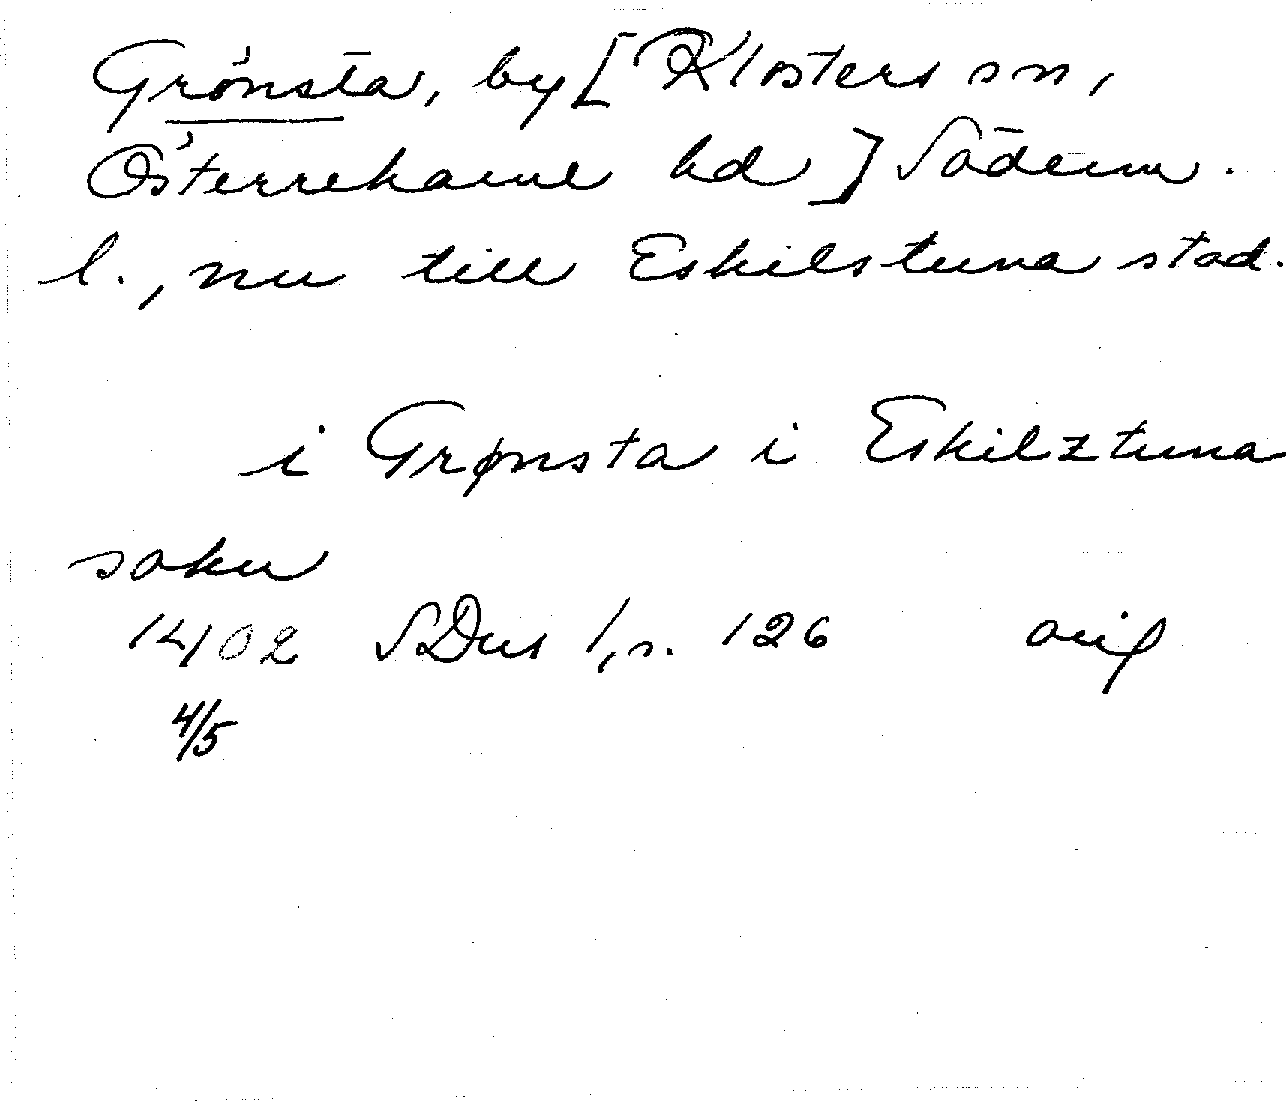 Grönsta, by [Klosters sn,
Österrekarne hd] Söderm.
l., nu till Eskilstuna stad.
i Grønsta i Eskilztuna
sokn
1402 SDns 1, s. 126 orig
4/5